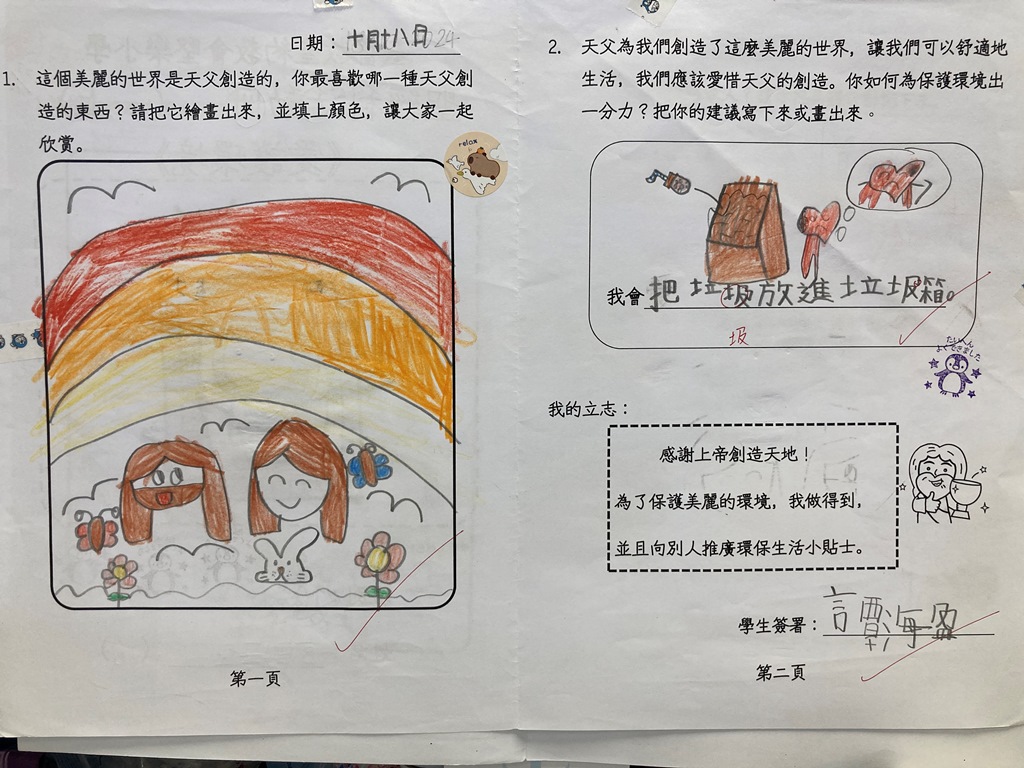 日期：十月十八日 024
1. 這個美麗的世界是天父創造的，你最喜歡哪一種天父創
造的東西？請把它繪畫出來，並填上顏色，讓大家一起
欣賞。
relax
第一頁
2. 天父為我們創造了這麼美麗的世界，讓我們可以舒適地
生活，我們應該愛惜天父的創造。你如何為保護環境出
一分力？把你的建議寫下來或畫出來。
我會 把垃圾放進垃圾箱。
圾
たいへん
よくできました
我的立志：
感謝上帝創造天地！
為了保護美麗的環境，我做得到，
並且向別人推廣環保生活小貼士。
學生簽署：譚海盈
第二頁